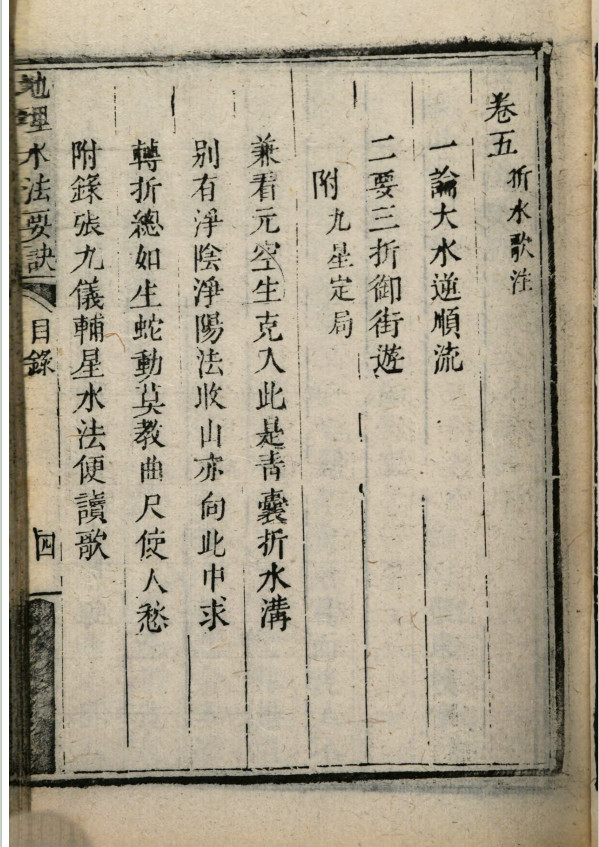 卷五 折水歌注
一論大水逆順流
二要三折御街遊
附九星定局
兼看元空生克入此是青囊折水溝
別有淨陰淨陽法收山亦向此中求
轉折總如生蛇動莫教曲尺使人愁
附錄張九儀輔星水法便讀歌
地理水法要訣
目錄
四